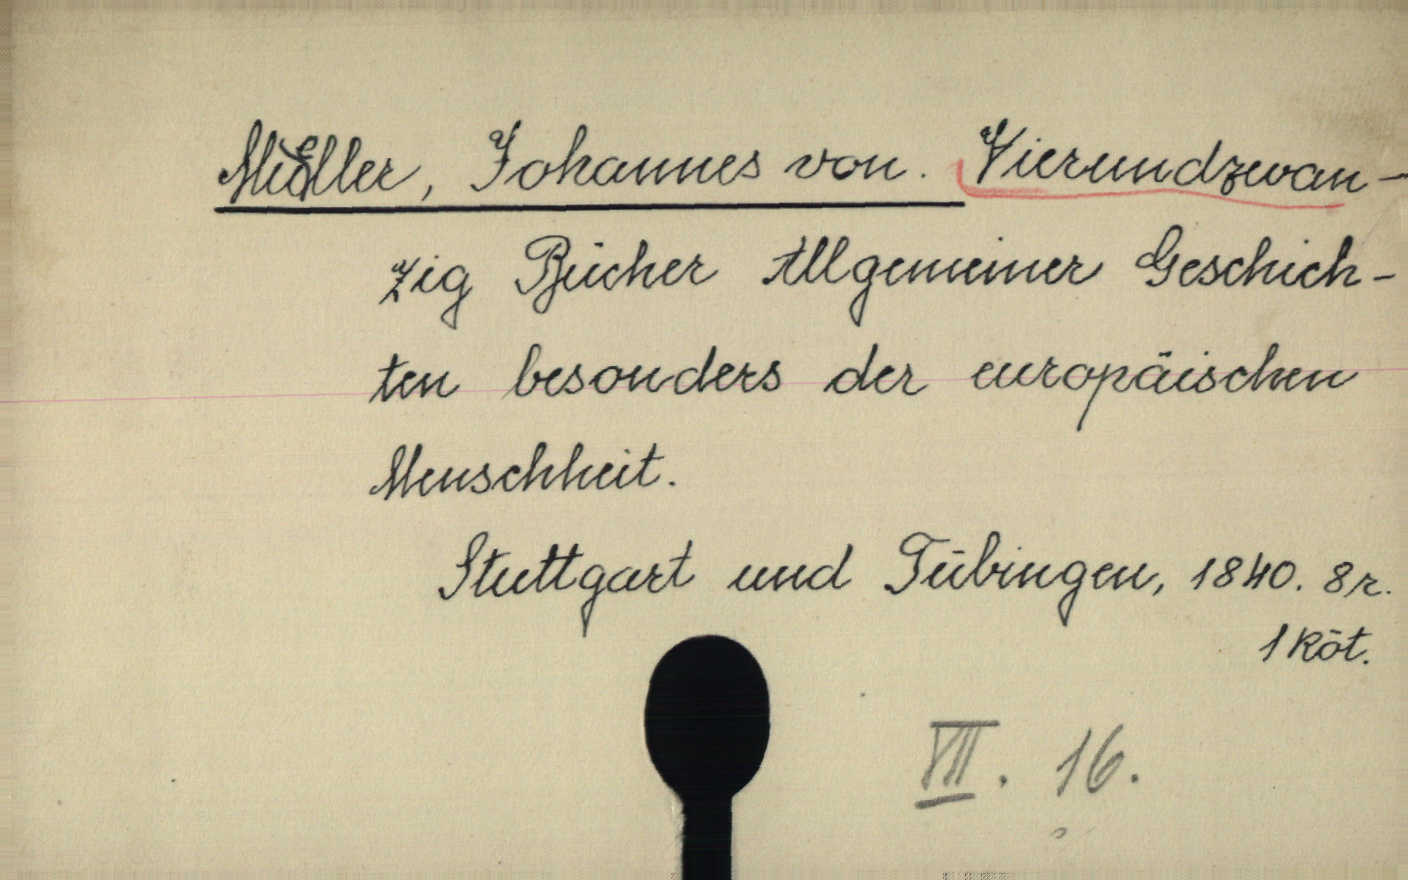 Müller, Johannes von. Vierundzwan-
zig Bücher Allgemeiner Geschich-
ten besonders der europäischen
Menschheit.
Stuttgart und Tübingen, 1840. 8r.
1 Köt.
VII. 16.